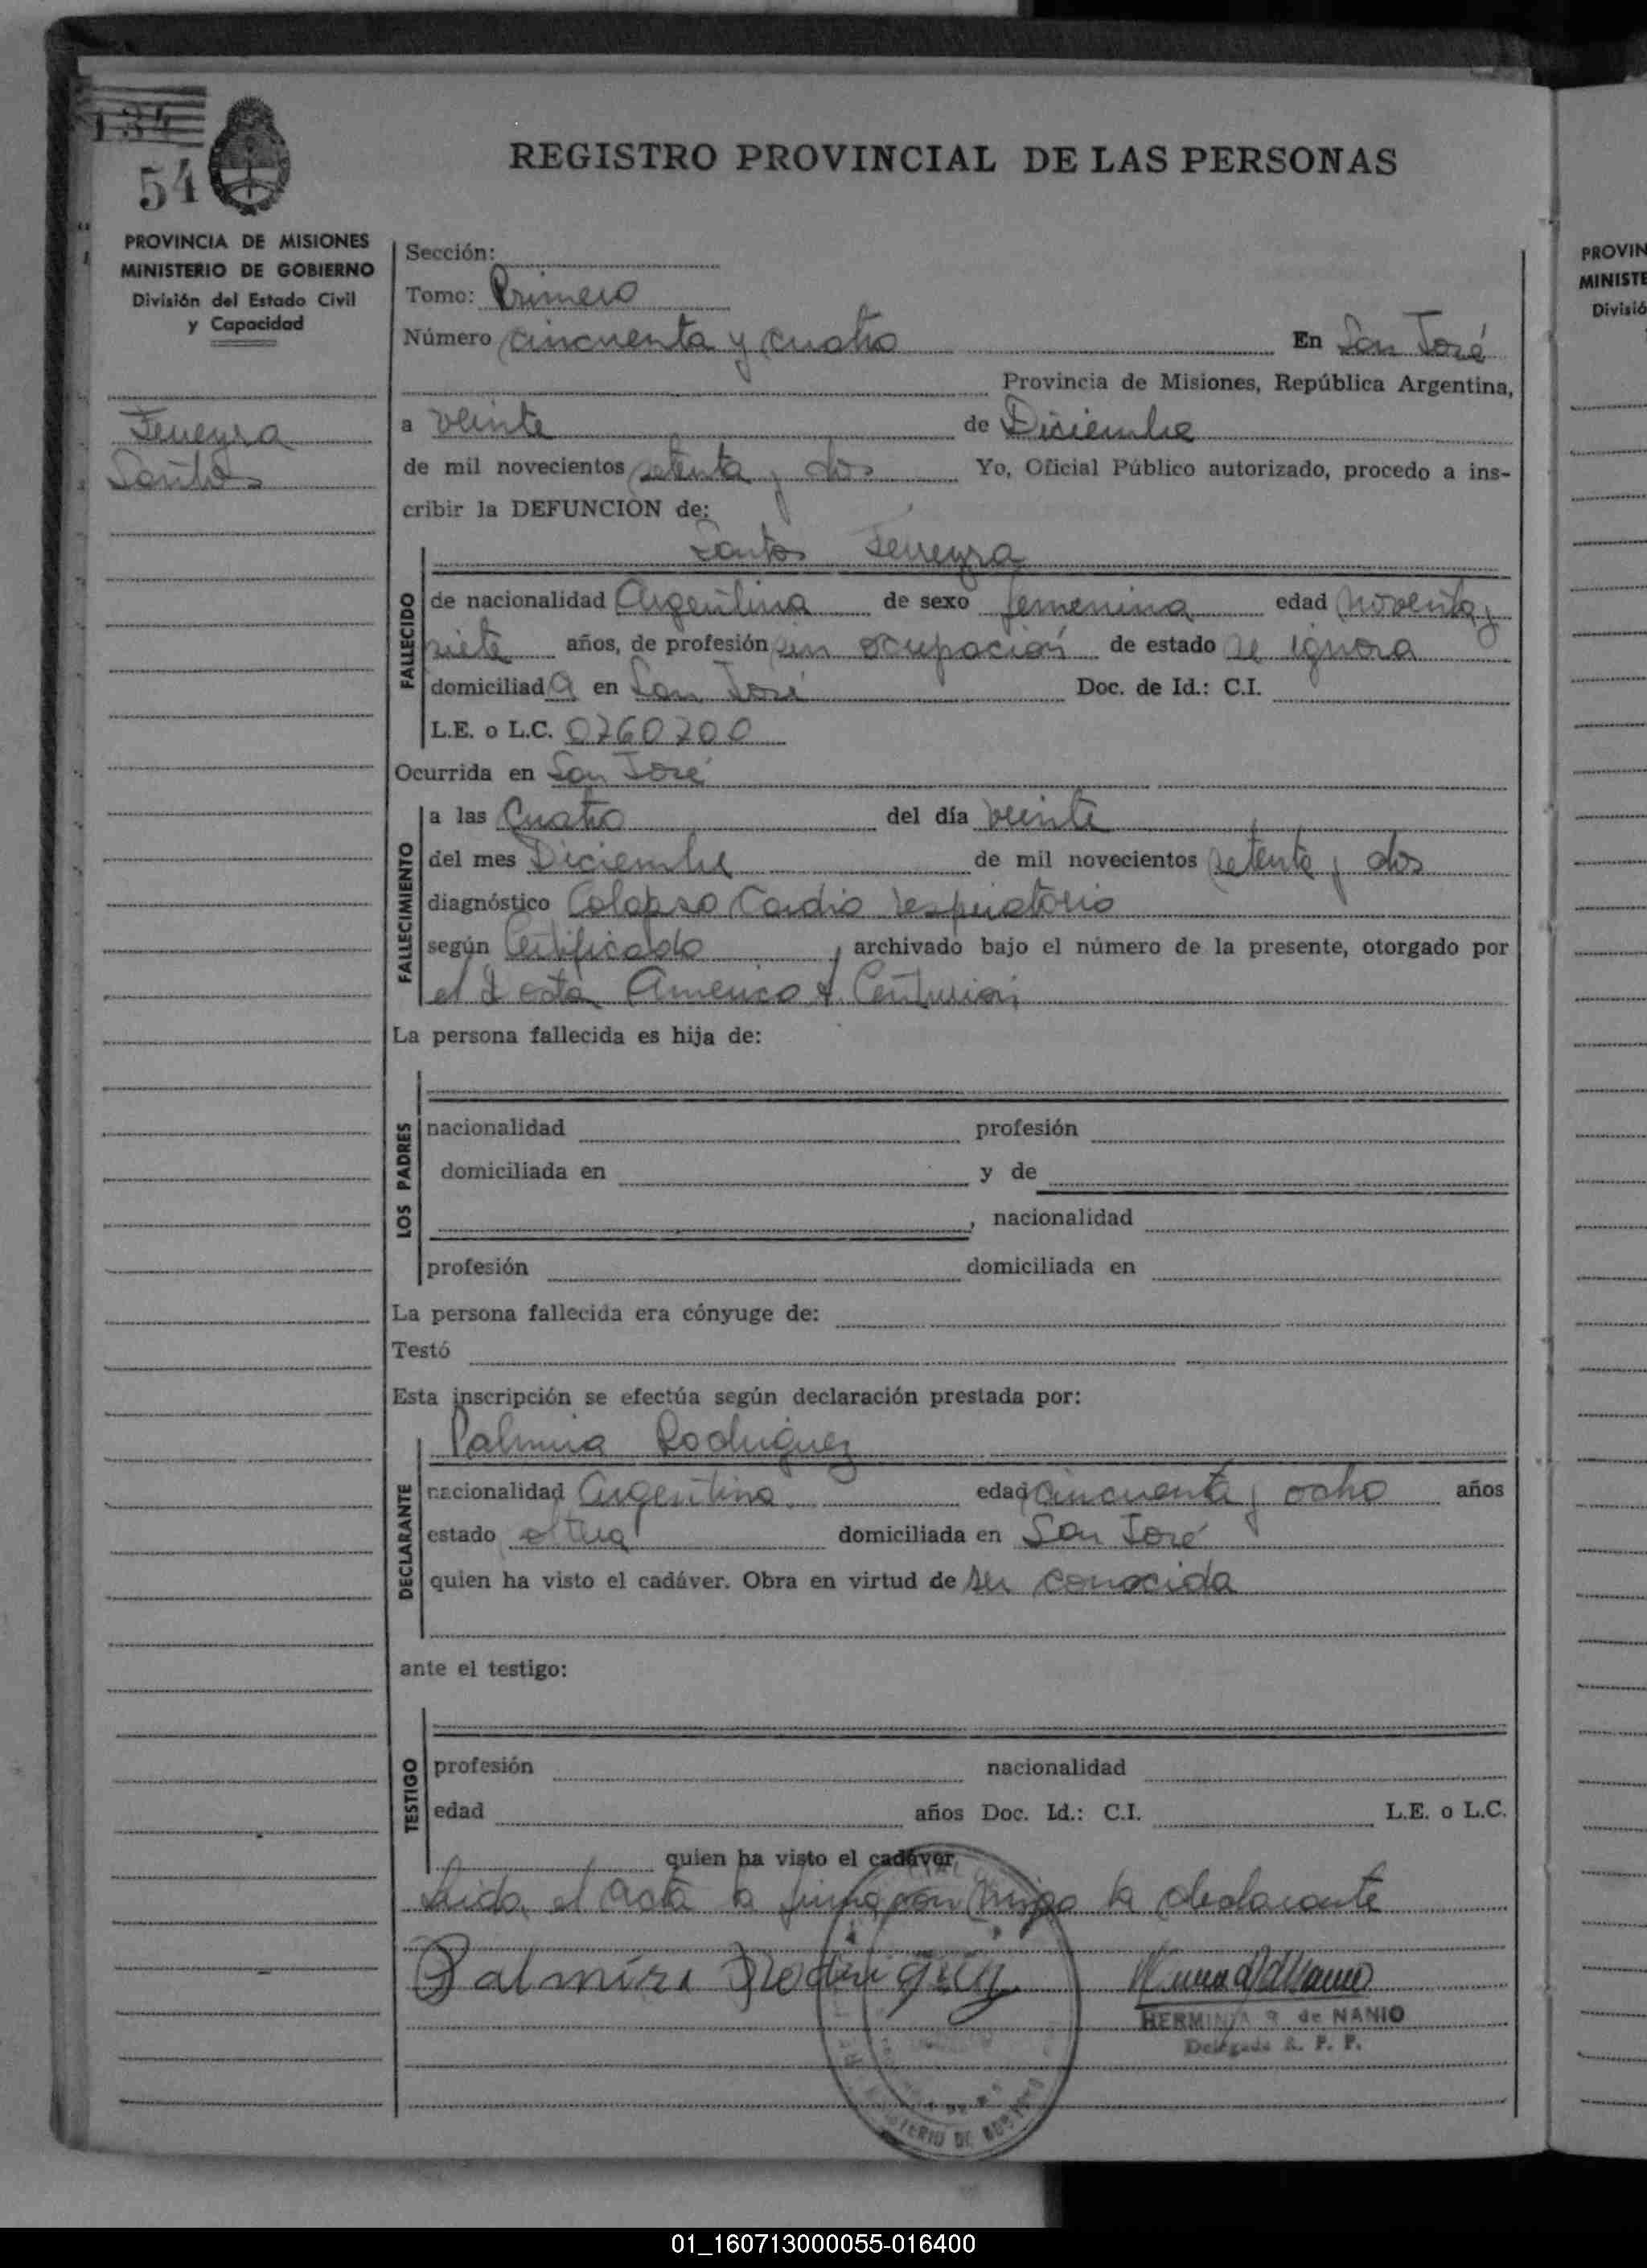 134
54
REGISTRO PROVINCIAL DE LAS PERSONAS
PROVINCIA DE MISIONES
MINISTERIO DE GOBIERNO
División del Estado Civil
y Capacidad
Ferreyra
Santos
Sección:
Tomo: Primero
Número cincuenta y cuatro En San José
Provincia de Misiones, República Argentina,
a veinte de Diciembre
de mil novecientos setenta y dos Yo, Oficial Público autorizado, procedo a ins-
cribir la DEFUNCION de:
Santos Ferreyra
FALLECIDO
de nacionalidad Argentina de sexo femenina edad noventa y
siete años, de profesión sin ocupación de estado se ignora
domiciliada en San José Doc. de Id.: C.I.
L.E. o L.C. 0760200
Ocurrida en San José
FALLECIMIENTO
a las Cuatro del día veinte
del mes Diciembre de mil novecientos setenta y dos
diagnóstico Colapso Cardio respiratorio
según Certificado, archivado bajo el número de la presente, otorgado por
el Americo A. Centurion
La persona fallecida es hija de:
LOS PADRES
nacionalidad profesión
domiciliada en y de
, nacionalidad
profesión domiciliada en
La persona fallecida era cónyuge de:
Testó
Esta inscripción se efectúa según declaración prestada por:
Palmira Rodriguez
DECLARANTE
nacionalidad Argentina edad cincuenta y ocho años
estado domiciliada en San José
quien ha visto el cadáver. Obra en virtud de ser conocida
ante el testigo:
TESTIGO
profesión nacionalidad
edad años Doc. Id.: C.I. L.E. o L.C.
quien ha visto el cadáver.
Leida el acta la firma conmigo la declarante
Palmira Rodriguez
HERMINIA de NANIO
Delegada R. P. P.
PROVIN
MINISTE
Divisió
01_160713000055-016400